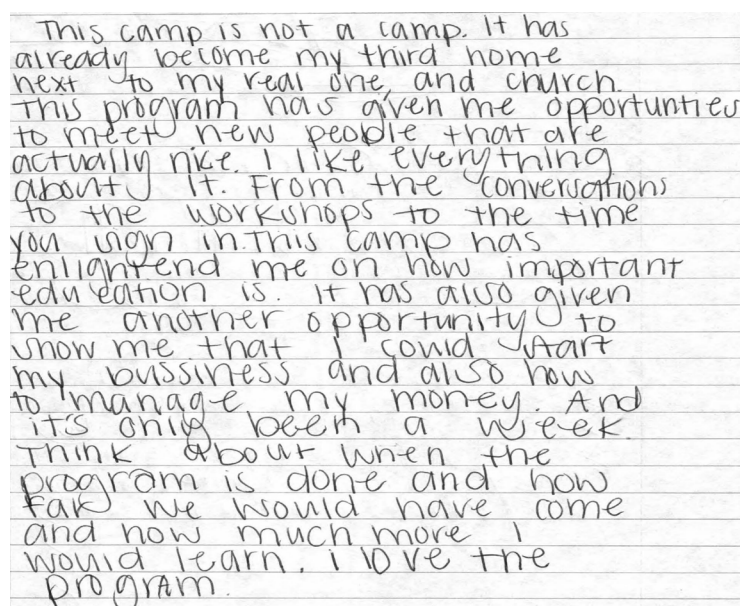 This camp is not a camp. It has
already become my third home
next to my real one, and church.
This program has given me opportunties
to meet new people that are
actually nice. I like everything
about it. From the conversations
to the workshops to the time
you sign in. This camp has
enlightend me on how important
edueation is. It has also given
me another opportunity to
show me that I could start
my bussiness and also how
to manage my money. And
it's only been a week.
Think about when the
program is done and how
far we would have come
and how much more I
would learn. i love the
program.